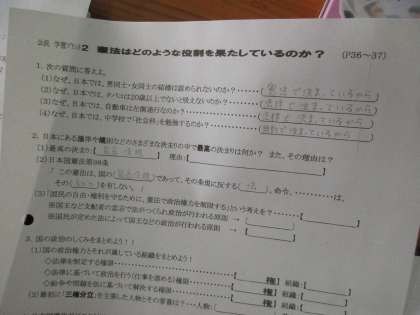 2次 学習プリント2 憲法はどのような役割を果たしているのか？ (P36～37)
1. 次の質問に答えよ。
(1)なぜ、日本では、男同士・女同士の結婚は認められないのか？・・・・・・〔憲法で決まっているから〕
(2)なぜ、日本では、タバコは20歳以上でないと吸えないのか？・・・・・・〔法律で決まっているから〕
(3)なぜ、日本では、自動車は左側通行なのか？・・・・・・〔法律で決まっているから〕
(4)なぜ、日本では、中学校で「社会科」を勉強するのか？・・・・・・〔法律で決まっているから〕
2. 日本にある法律や規則などのさまざまな決まりの中で最高の決まりは何か？ また、その理由は？
(1)最高の決まり：〔 〕 理由：〔 〕
(2)日本国憲法第98条
「 この憲法は、国の〔最高法規〕であって、その条規に反する〔法〕、命令、・・・・・・・・は、
その〔 〕を有しない。 」
(3)「国民の自由・権利を守るために、憲法で政治権力を制限する」という考えを？・・・・・・
※国王など支配者の意志で法がつくられ政治が行われる原則 →〔 〕
※国民が定めた法によって国王などの政治が行われる原則 →〔 〕
3. 国の政治のしくみをまとめよう！！
(1)国の政治権力とそれが属している組織をまとめよう！
◇法律を制定する権限・・・・・・〔 権〕 組織：〔
◇法律に基づいて政治を行う(仕事を進める)権限・・・・・・〔 権〕 組織：〔
◇紛争や問題を法に基づいて解決する権限・・・・・・〔 権〕 組織：〔
(2)最初に「三権分立」を主張した人物とその著書は？・・・人物：〔